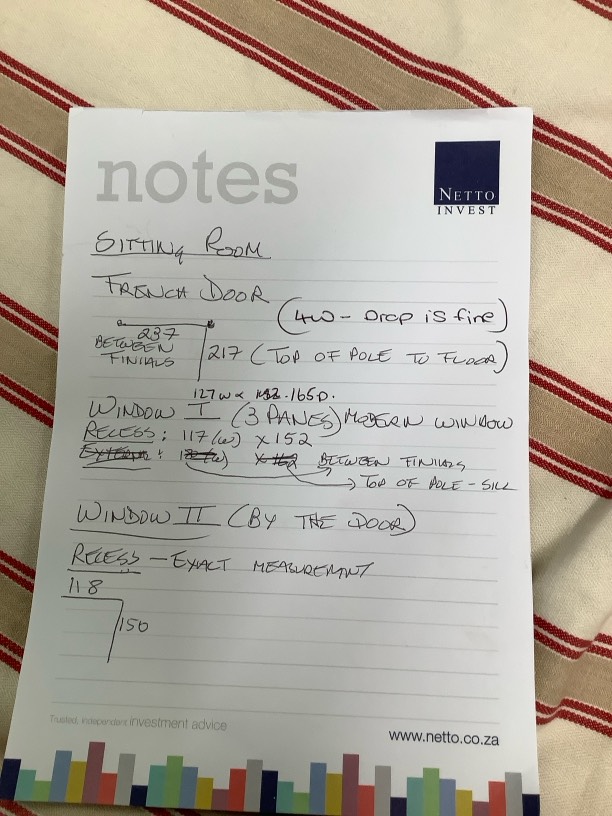 notes
NETTO
INVEST
SITTING ROOM
FRENCH DOOR
(4W - Drop is fine)
237
BETWEEN
FINIALS
217 (TOP OF POLE TO FLOOR)
127W x 165D.
WINDOW I (3 PANES) MODERN WINDOW
RECESS: 117 (W) x 152
BETWEEN FINIALS
TOP OF POLE - SILL
WINDOW II (BY THE DOOR)
RECESS - EXACT MEASUREMENT
118
150
Trusted, independent investment advice
www.netto.co.za